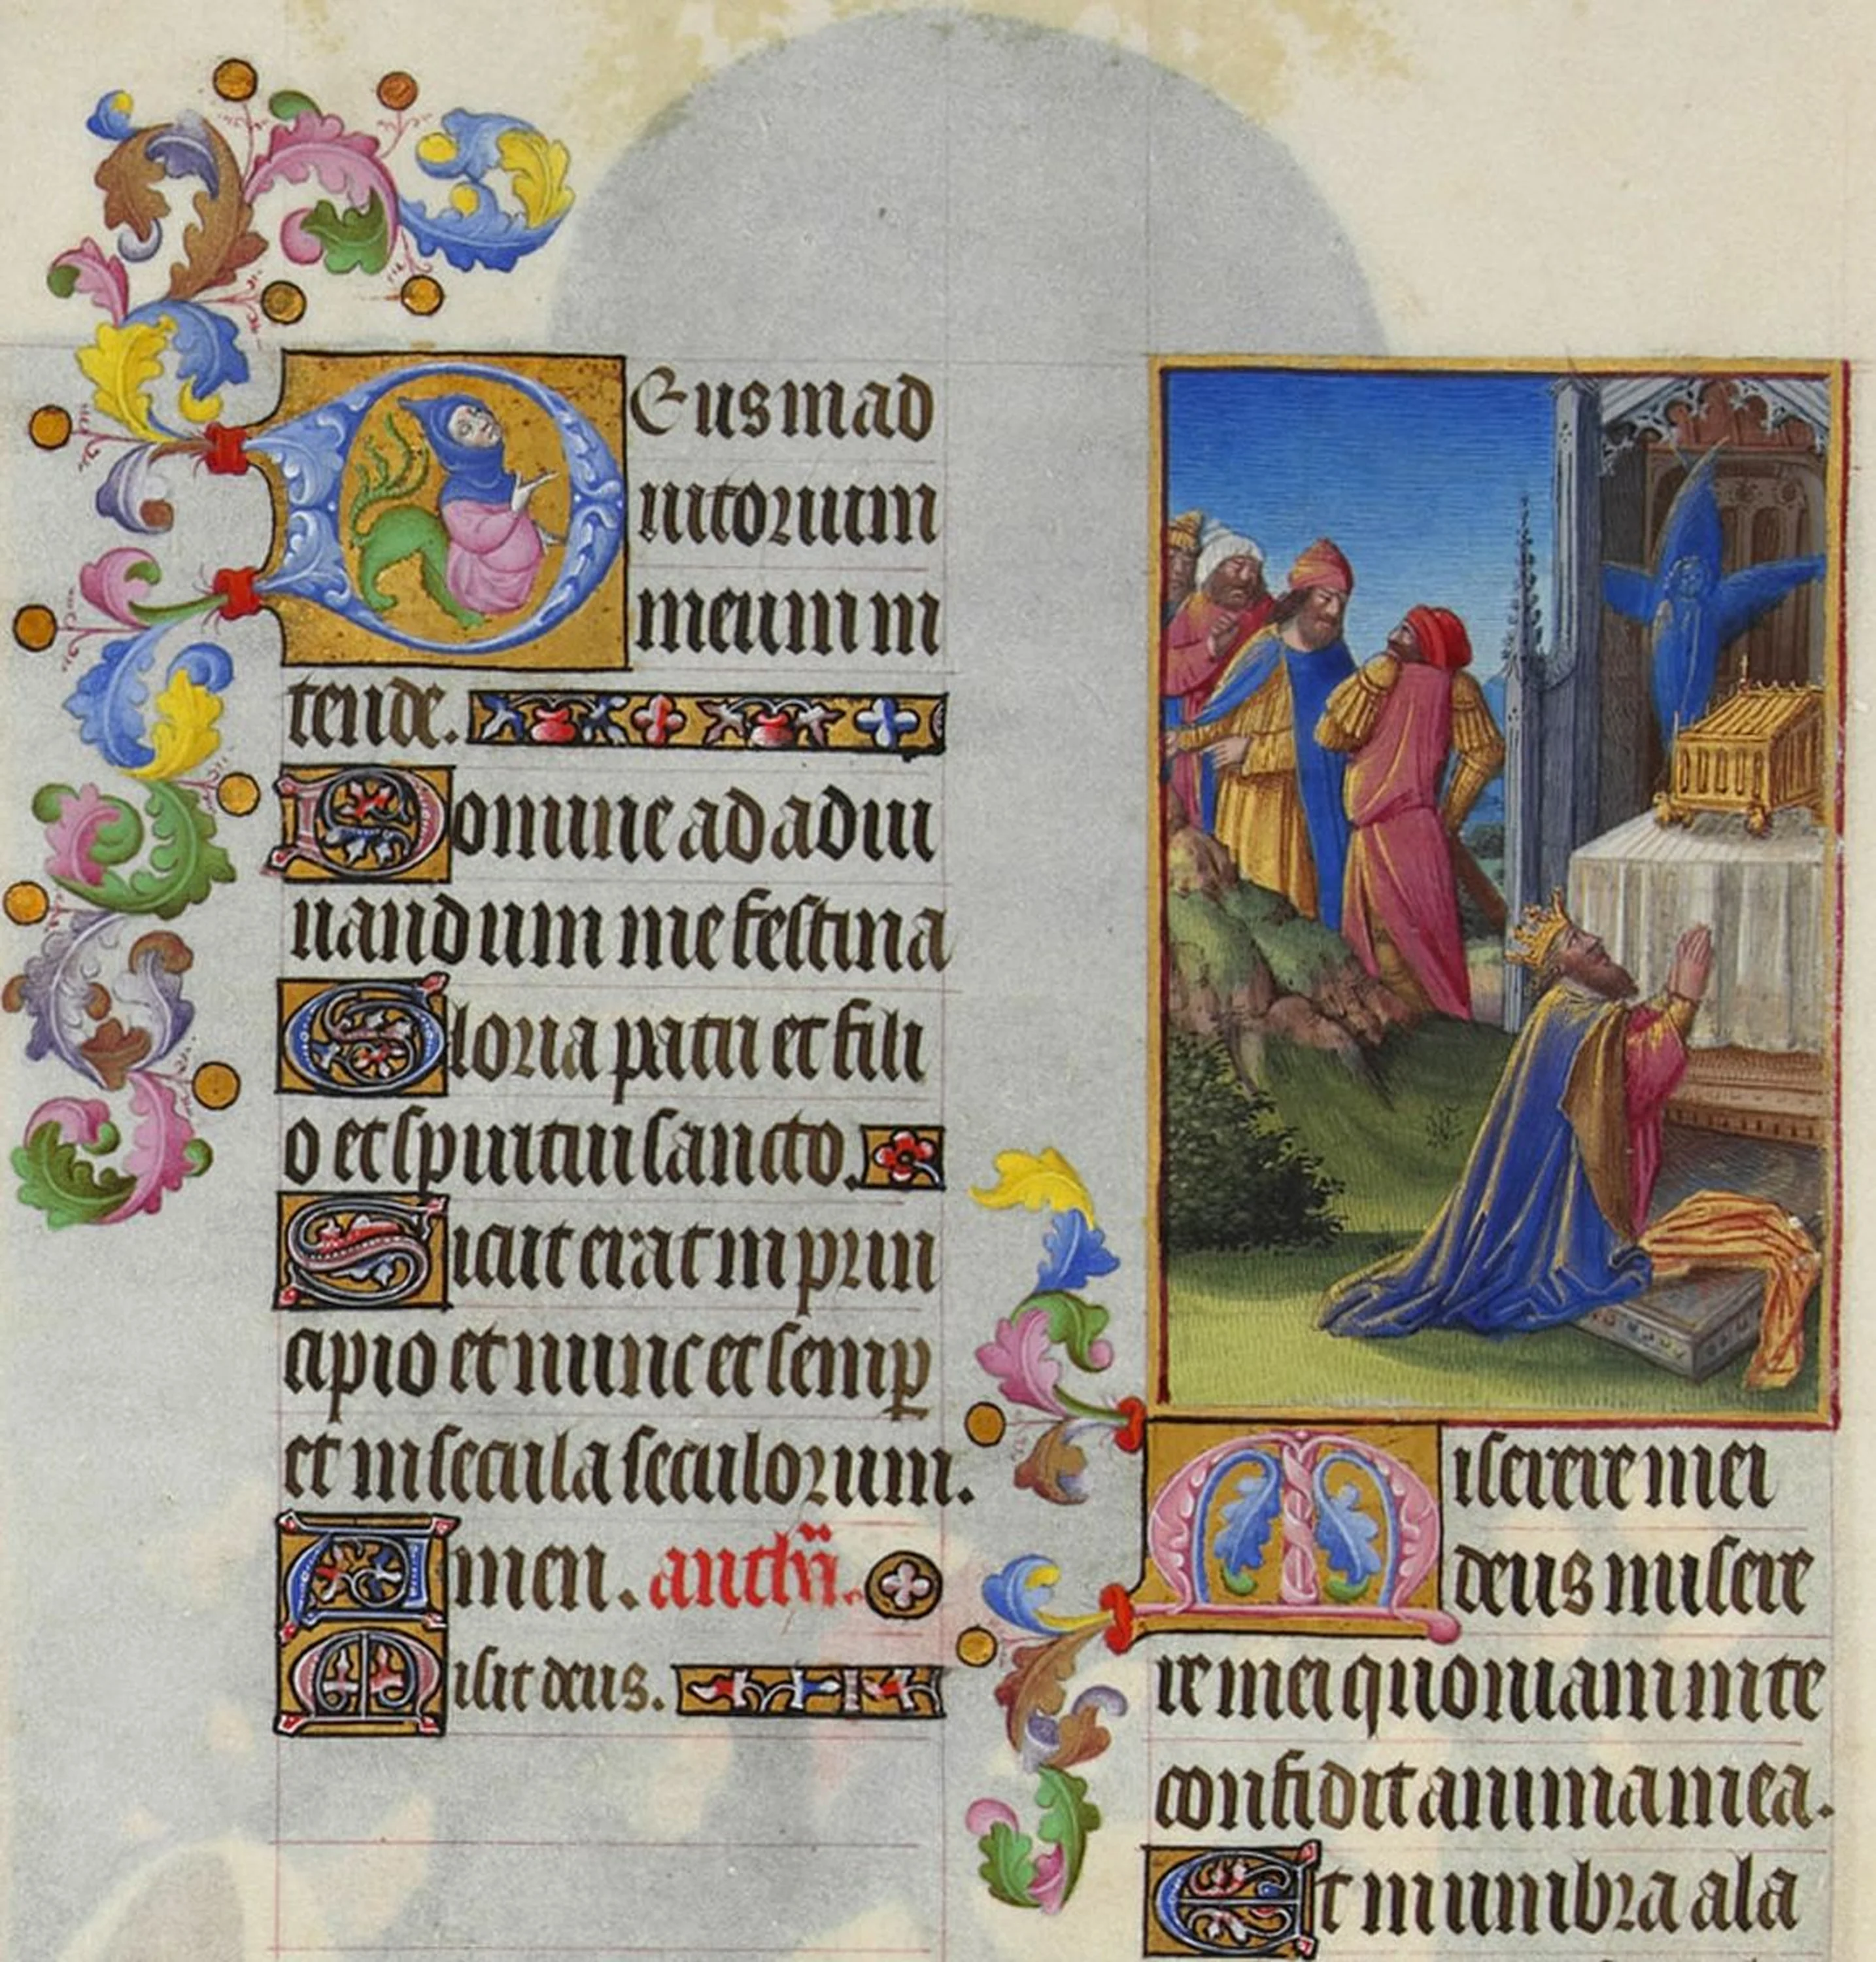 Deus in ad
iutorium
meum in
tende.
Domine ad adiu
uandum me festina
Gloria patri et fili
o et spiritui sancto.
Sicut erat in prin
cipio et nunc et semp
et in secula seculorum.
Amen. anthā.
Misit deus.
Miserere mei
deus misere
re mei quoniam in te
confidit anima mea.
Et in umbra ala